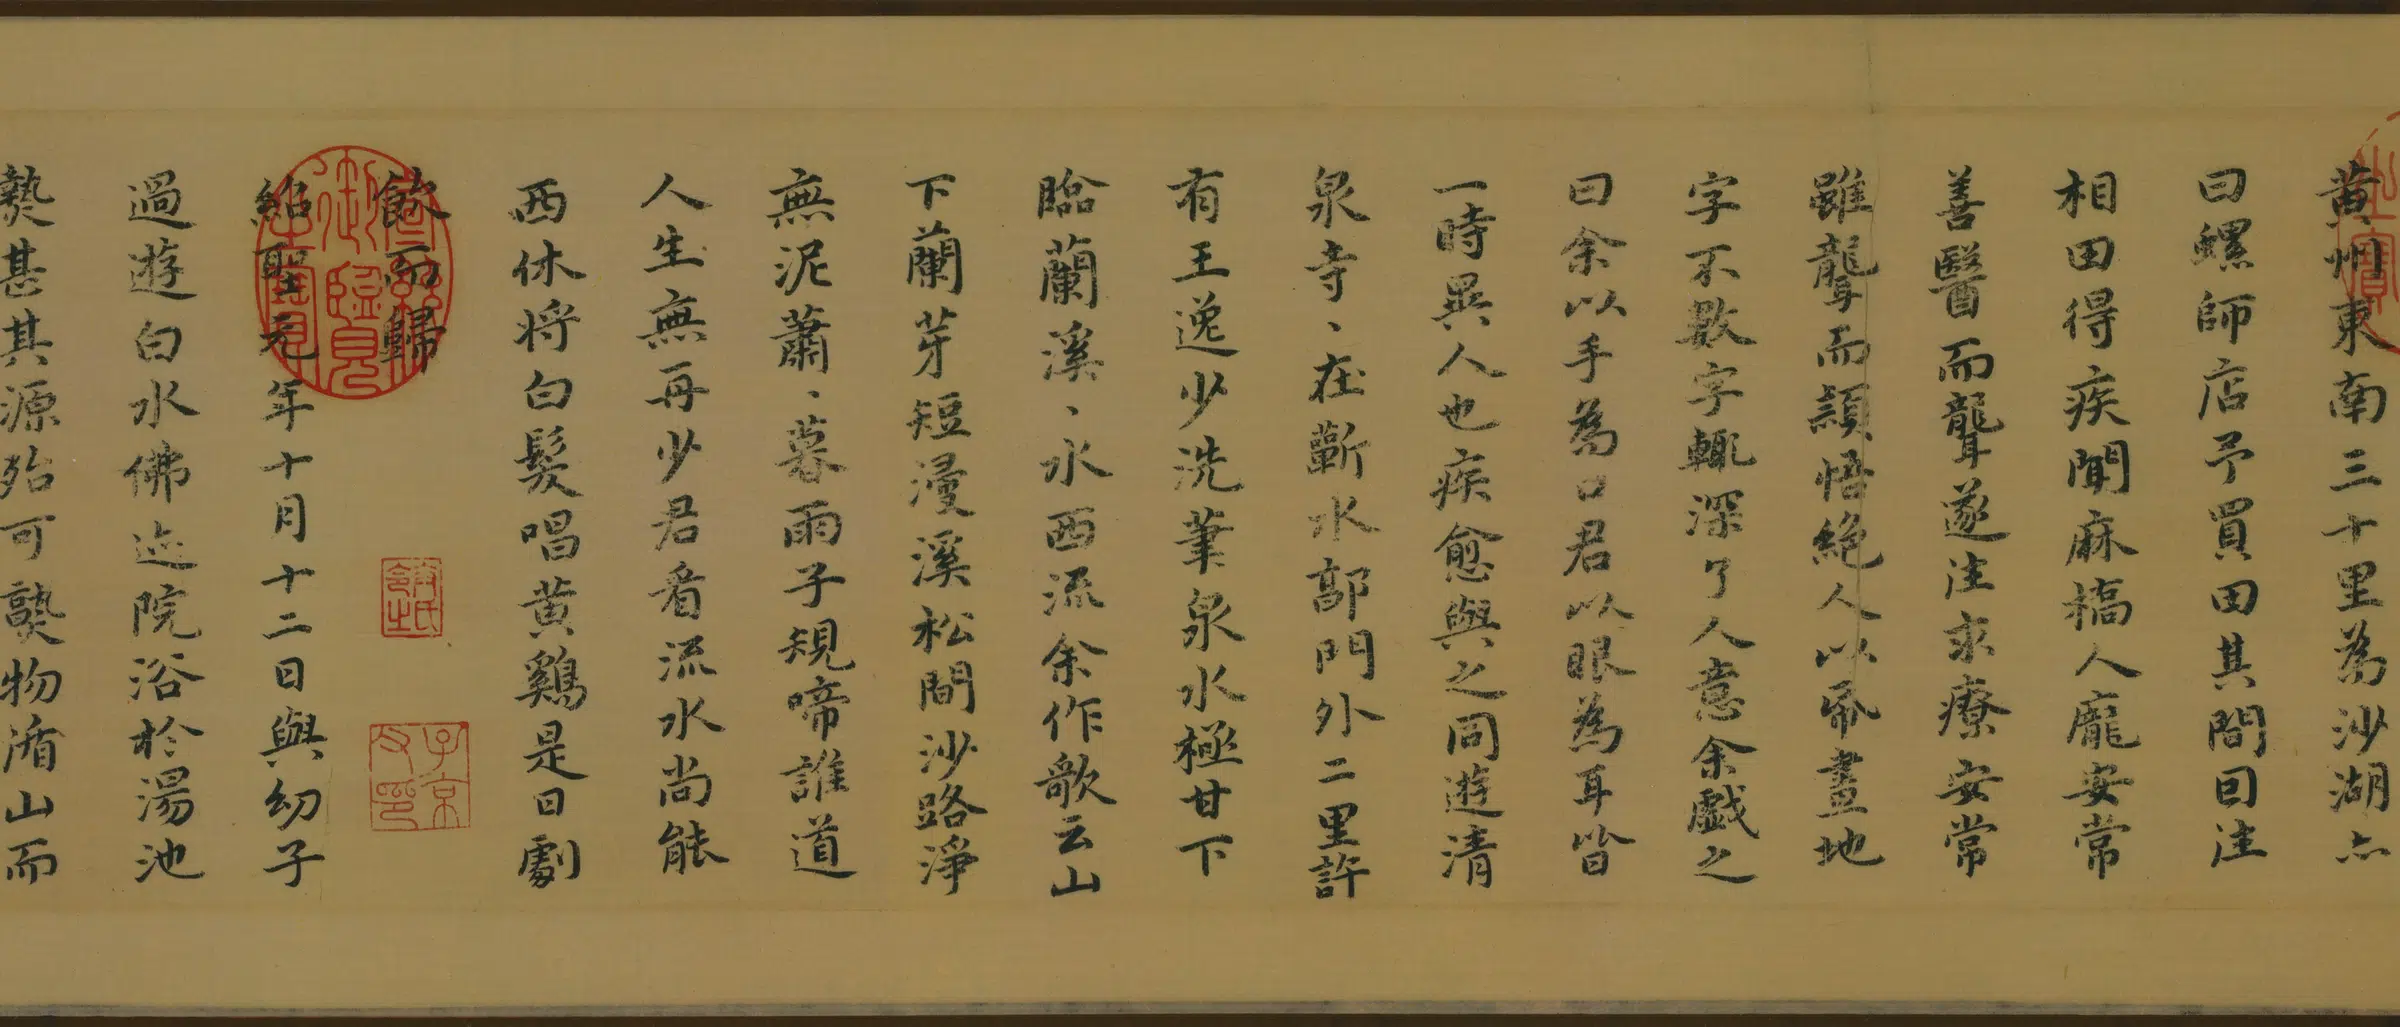 黄州東南三十里為沙湖亦
曰螺師店予買田其間因往
相田得疾聞麻橋人龐安常
善醫而聾遂往求療安常
雖聾而穎悟絕人以帋畫地
字不數字輒深了人意余戲之
曰余以手為口君以眼為耳皆
一時異人也疾愈與之同遊清
泉寺、在蘄水郭門外二里許
有王逸少洗筆泉水極甘下
臨蘭溪、水西流余作歌云山
下蘭芽短浸溪松間沙路淨
無泥蕭、暮雨子規啼誰道
人生無再少君看流水尚能
西休将白髮唱黄鷄是日劇
飲而歸
子京父印
紹聖元年十月十二日與幼子
過遊白水佛迹院浴於湯池
熱甚其源殆可熟物循山而